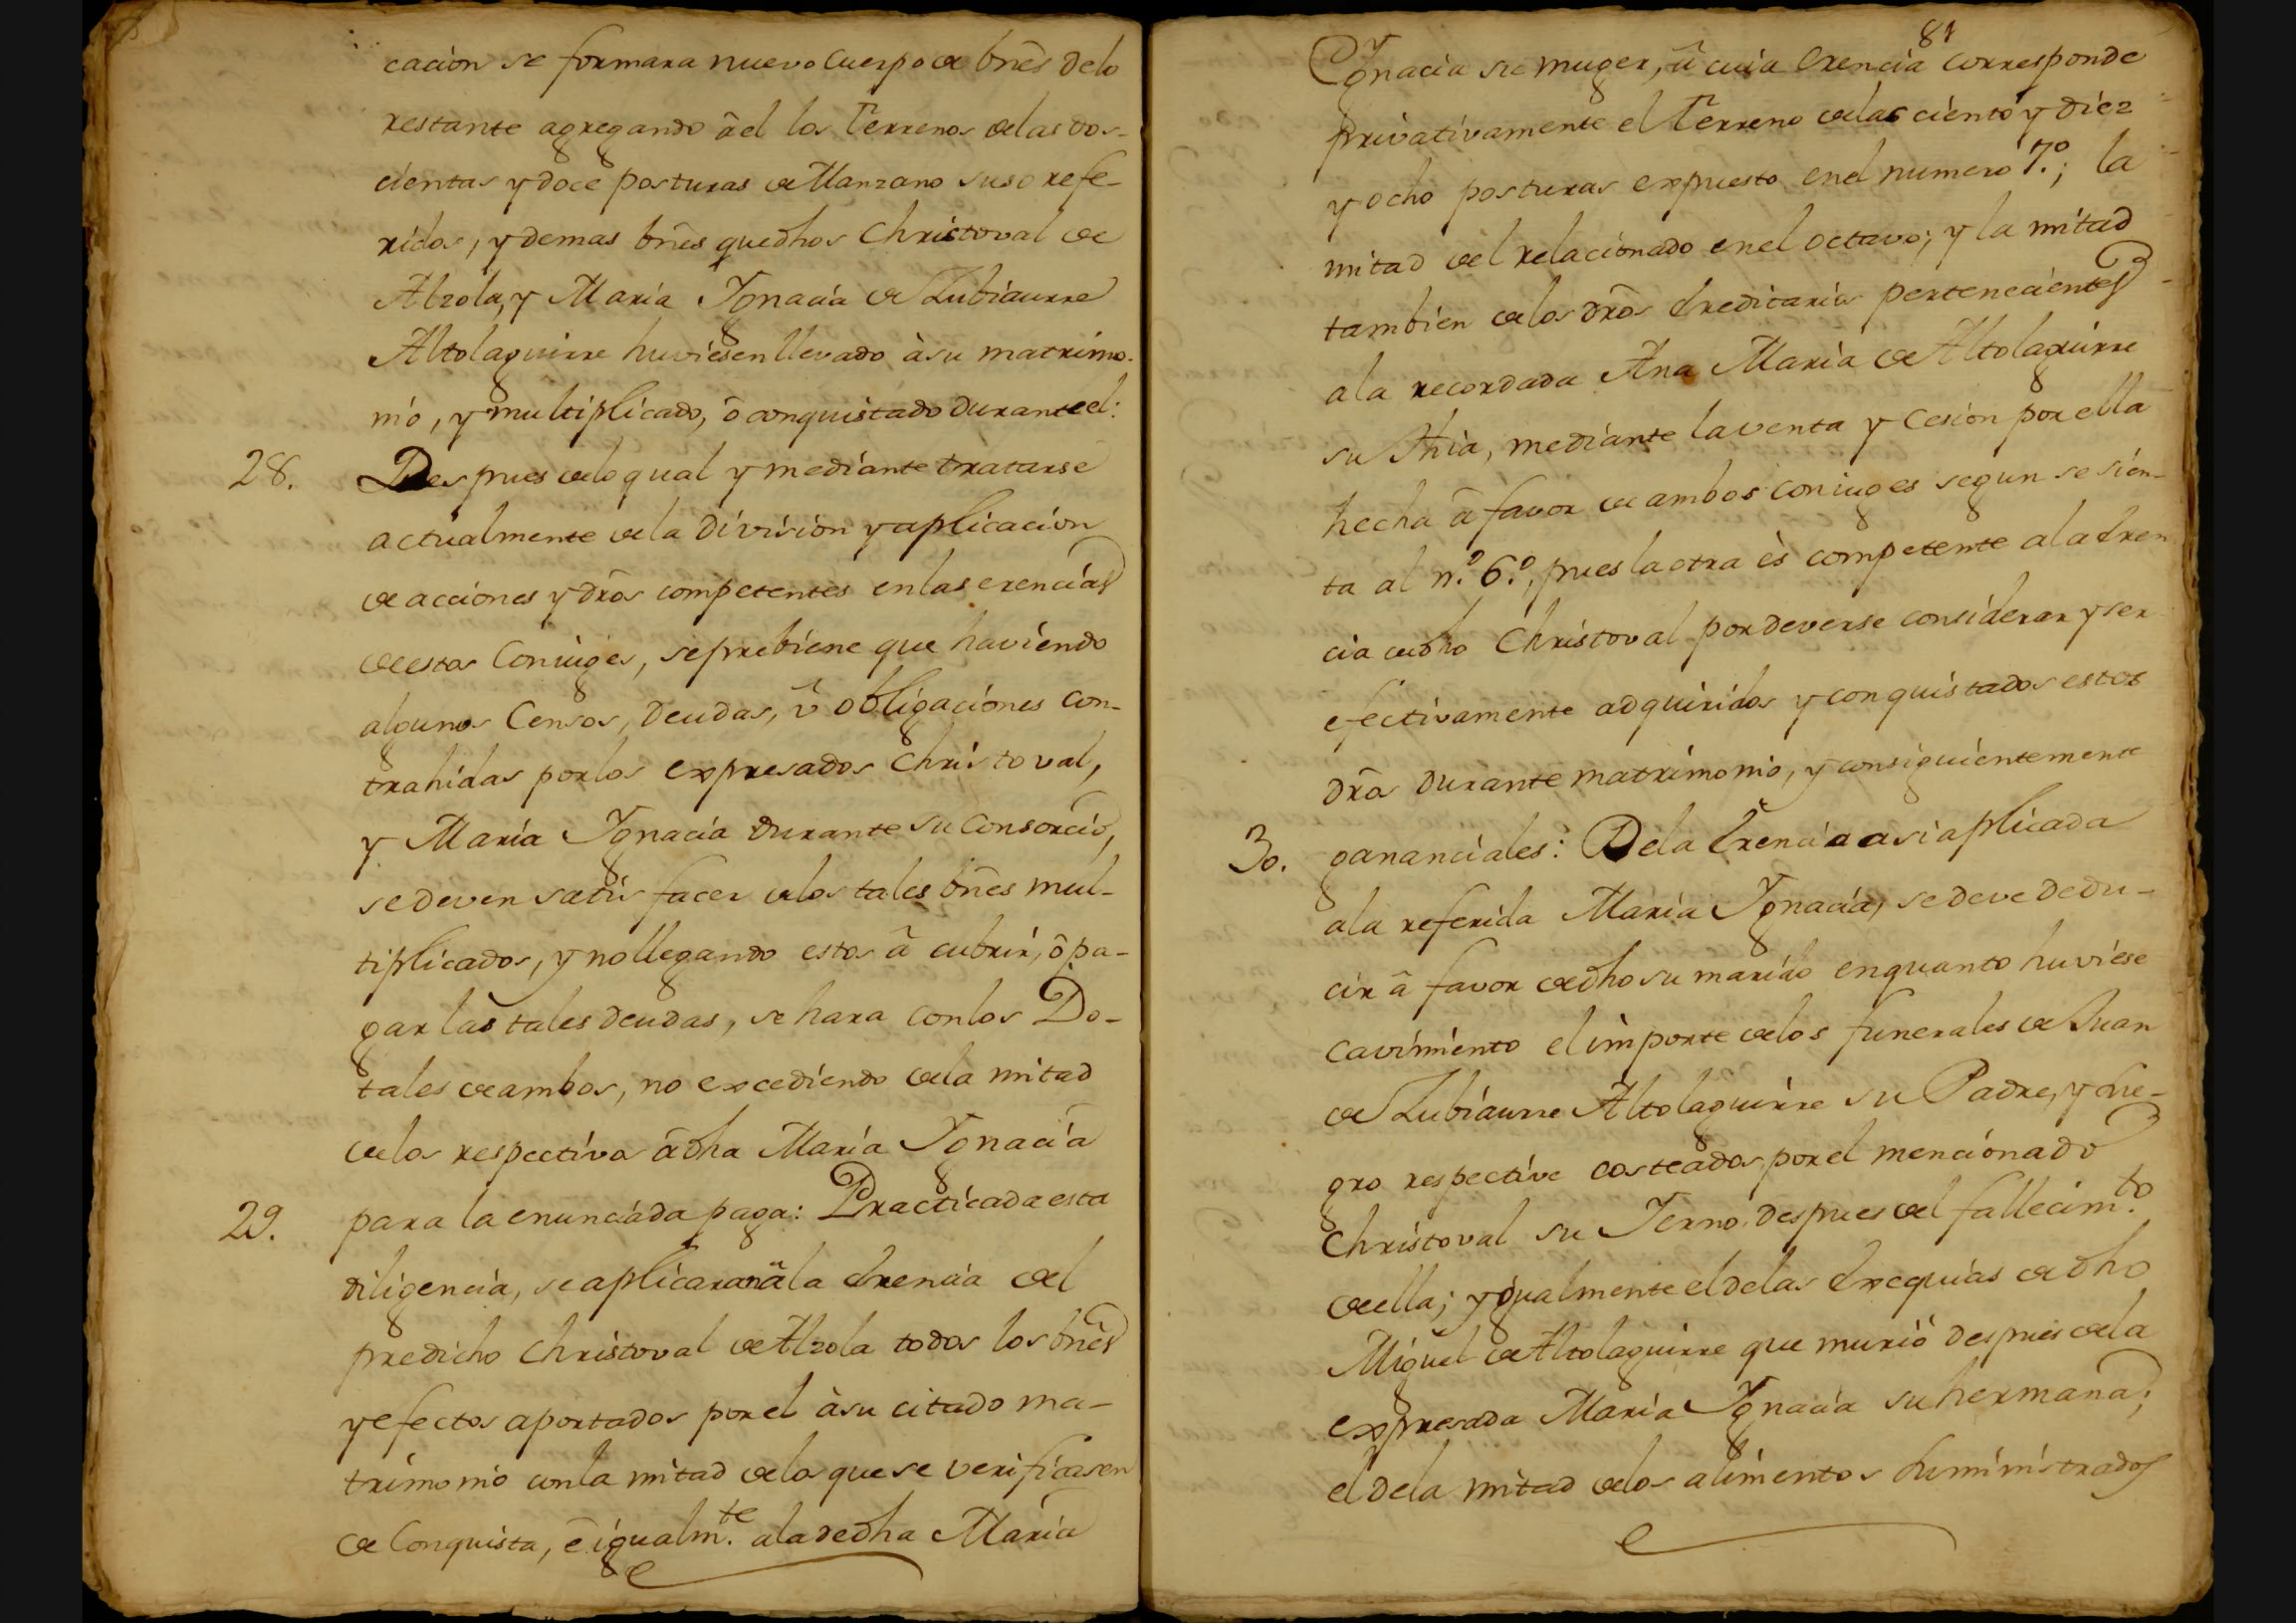 cacion se formara nuevo cuerpo de bn̄es delo
restante agregando ā el los Terrenos delas dos-
cientas y doce posturas de Manzano suso refe-
ridos, y demas bn̄es que dhos Christoval de
Alzola, y Maria Ignacia de Zubiaurre
Altolaguirre huviesen llevado à su matrimo-
nio, y multiplicado, ō conquistado durante el:
28. Despues delo qual y mediante tratarse
actualmente dela division y aplicacion
de acciones y dr̄os competentes en las erencias
de estos Coniuges, se prebiene que haviendo
algunos Censos, Deudas, ū obligaciones con-
trahidas por los expresados Christoval,
y Maria Ignacia durante su Consorcio,
se deven satisfacer delos tales bn̄es mul-
tiplicados, y no llegando estos ā cubrir, ō pa-
gar las tales deudas, se hara con los Do-
tales de ambos, no excediendo dela mitad
delos respectivos ā dha Maria Ignacia
29. para la enunciada paga: Practicada esta
diligencia, se aplicaran ā la Erencia del
predicho Christoval de Alzola todos los bn̄es
y efectos aportados por el à su citado ma-
trimonio con la mitad delos que se verificasen
de Conquista, ē igualm.te ala dedha Maria
81
Ignacia su muger, ā cuia Erencia corresponde
privativamente el Terreno delas ciento y diez
y ocho posturas expuesto en el numero 7.º; la
mitad del relacionado en el octavo; y la mitad
tambien delos dr̄os Ereditarios pertenecientes
ala recordada Ana Maria de Altolaguirre
su Thia, mediante la venta y Cesion por ella
hecha ā favor de ambos coniuges segun se sien-
ta al n.º 6.º, pues la otra ès competente ala Eren
cia de dho Christoval por deverse considerar y ser
efectivamente adquiridos y conquistados estos
dr̄os durante matrimonio, y consiguientemente
30. gananciales: Dela Erencia asi aplicada
ala referida Maria Ignacia, se deve dedu-
cir ā favor de dho su marido en quanto huviese
cavimiento el importe delos funerales de Juan
de Zubiaurre Altolaguirre su Padre, y Sue-
gro respective costeados por el mencionado
Christoval su Ierno despues del fallecim.to
de ella; y igualmente el delas Exequias de dho
Miguel de Altolaguirre que murió despues dela
expresada Maria Ignacia su hermana;
el dela mitad delos alimentos suministrados